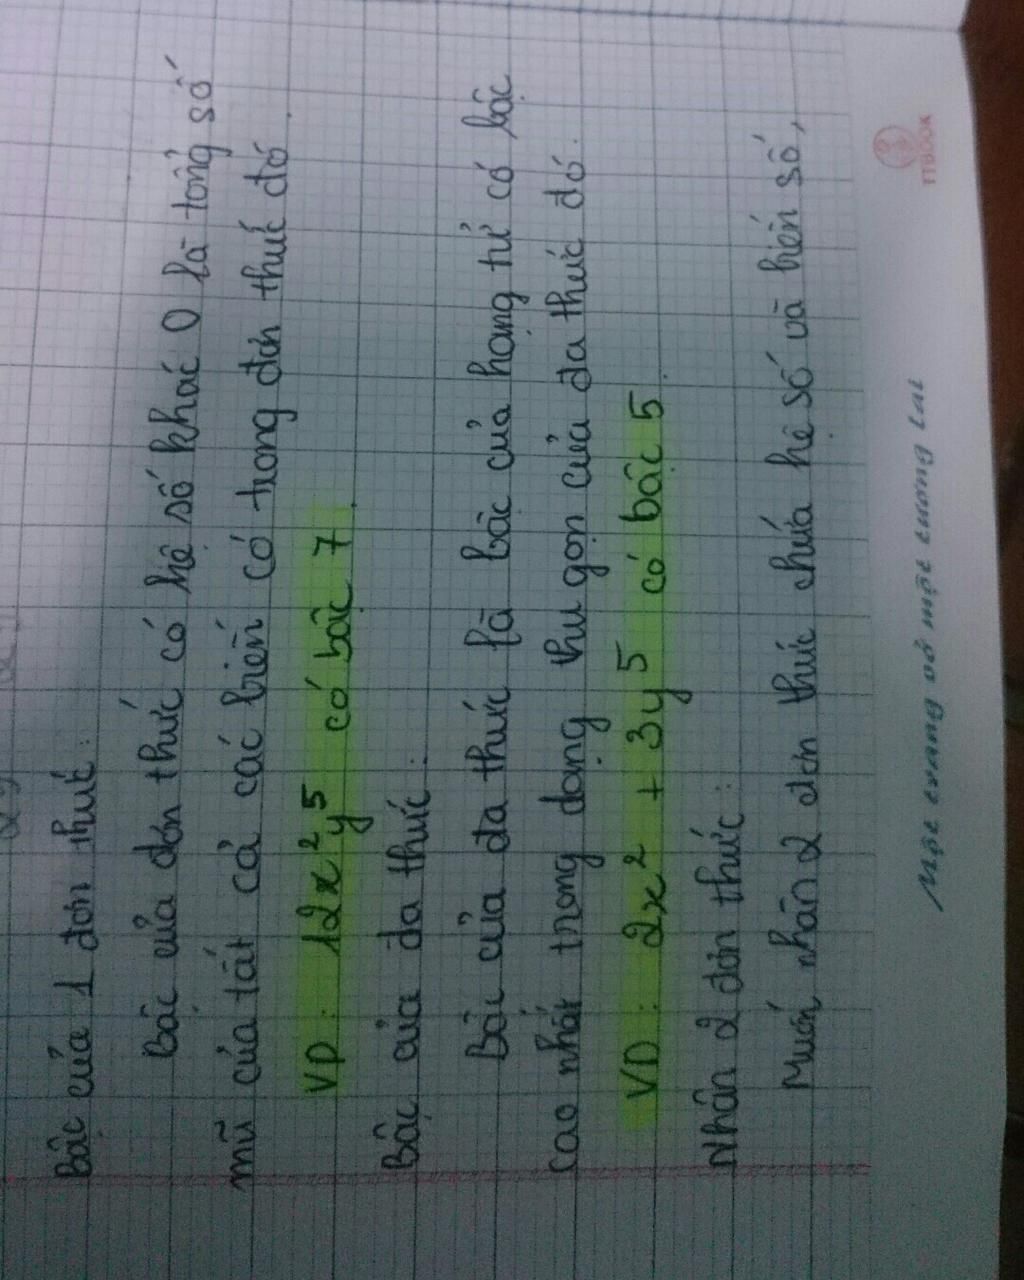 Bậc của 1 đơn thức:
Bậc của đơn thức có hệ số khác 0 là tổng số
mũ của tất cả các biến có trong đơn thức đó.
VD: 12x²y⁵ có bậc 7.
Bậc của đa thức:
Bậc của đa thức là bậc của hạng tử có bậc
cao nhất trong dạng thu gọn của đa thức đó.
VD: 2x² + 3y⁵ có bậc 5.
Nhân 2 đơn thức:
Muốn nhân 2 đơn thức chứa hệ số và biến số,
Một trang vở một tương lai
TTBOOK